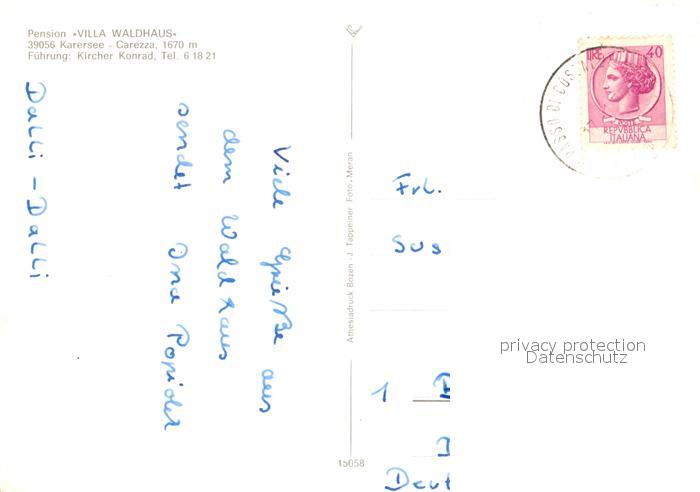 Pension «VILLA WALDHAUS»
39056 Karersee - Carezza, 1670 m
Führung: Kircher Konrad, Tel. 6 18 21
Viele Grüße aus
dem Waldhaus
sendet
Dalli - Dalli
Athesiadruck Bozen - J. Tappeiner Foto, Meran
15058
LIRE 40
POSTE
REPVBBLICA
ITALIANA
PASSO DI COS
Frl.
Sus
1
Deut
privacy protection
Datenschutz